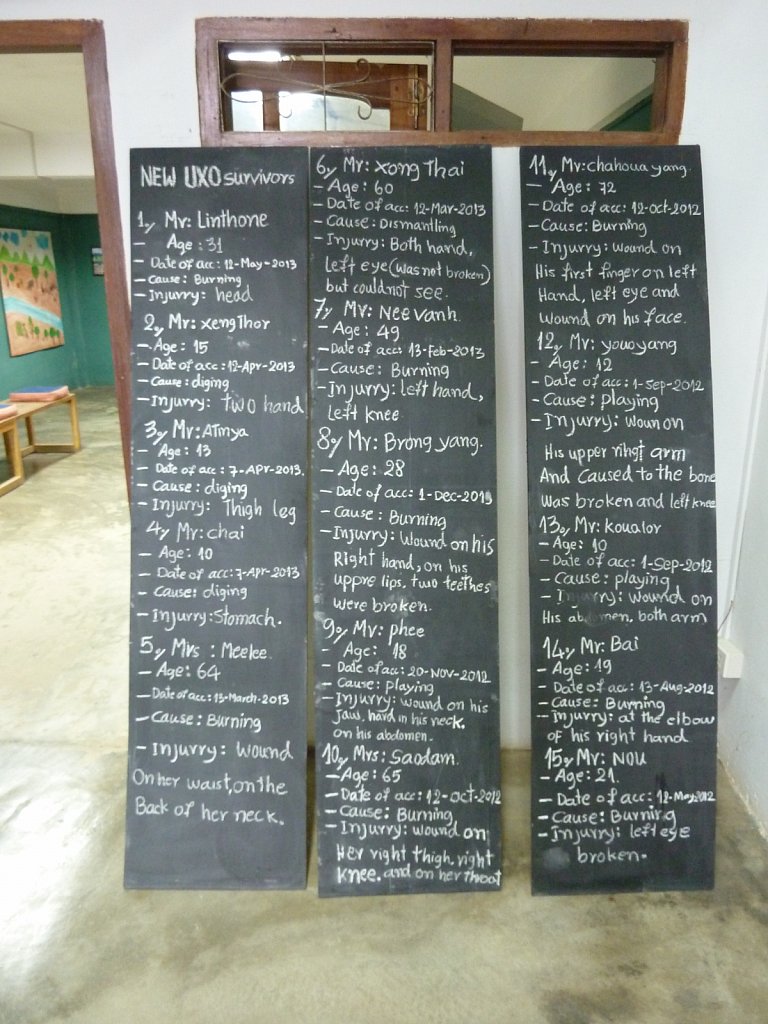 NEW UXO survivors
1, Mr: Linthone
- Age: 31
- Date of acc: 12-May-2013
- Cause: Burning
- Injurry: head
2, Mr: xengThor
- Age: 15
- Date of acc: 12-Apr-2013
- Cause: diging
- Injurry: two hand
3, Mr: ATinya
- Age: 13
- Date of acc: 7-APR-2013.
- Cause: diging
- Injurry: Thigh leg
4, Mr: chai
- Age: 10
- Date of acc: 7-Apr-2013
- Cause: diging
- Injurry: Stomach.
5, Mrs: Meelee
- Age: 64
- Date of acc: 13-March-2013
- Cause: Burning
- Injurry: Wound
On her waist, on the
Back of her neck.
6, Mr: xong Thai
- Age: 60
- Date of acc: 12-Mar-2013
- Cause: Dismantling
- Injurry: Both hand,
left eye (was not broken)
but couldnot see.
7, Mr: Nee vanh.
- Age: 49
- Date of acc: 13-Feb-2013
- Cause: Burning
- Injurry: left hand,
left knee
8, Mr: Brong yang.
- Age: 28
- Date of acc: 1-Dec-2013
- Cause: Burning
- Injurry: Wound on his
Right hand, on his
uppre lips, two teethes
were broken.
9, Mr: phee
- Age: 18
- Date of acc: 20-NOV-2012
- Cause: playing
- Injurry: wound on his
Jaw, hand in his neck.
on his abdomen.
10, Mrs: Saodam.
- Age: 65
- Date of acc: 12-Oct-2012
- Cause: Burning
- Injurry: wound on
Her right thigh, right
knee, and on her throat
11, Mr: chahoua yang.
- Age: 72
- Date of acc: 12-Oct-2012
- Cause: Burning
- Injurry: wound on
His first finger on left
Hand, left eye and
Wound on his face.
12, Mr: youoyang
- Age: 12
- Date of acc: 1-Sep-2012
- Cause: playing
- Injurry: woun on
His upper rihgt arm
And Caused to the bone
was broken and left knee
13, Mr: koualor
- Age: 10
- Date of acc: 1-Sep-2012
- Cause: playing
- Injurry: wound on
His abdomen, both arm
14, Mr: Bai
- Age: 19
- Date of acc: 13-Aug-2012
- Cause: Burning
- injurry: at the elbow
of his right hand
15, Mr: NOU
- Age: 21.
- Date of acc: 12-May2012
- Cause: Burning
- Injurry: left eye
broken.